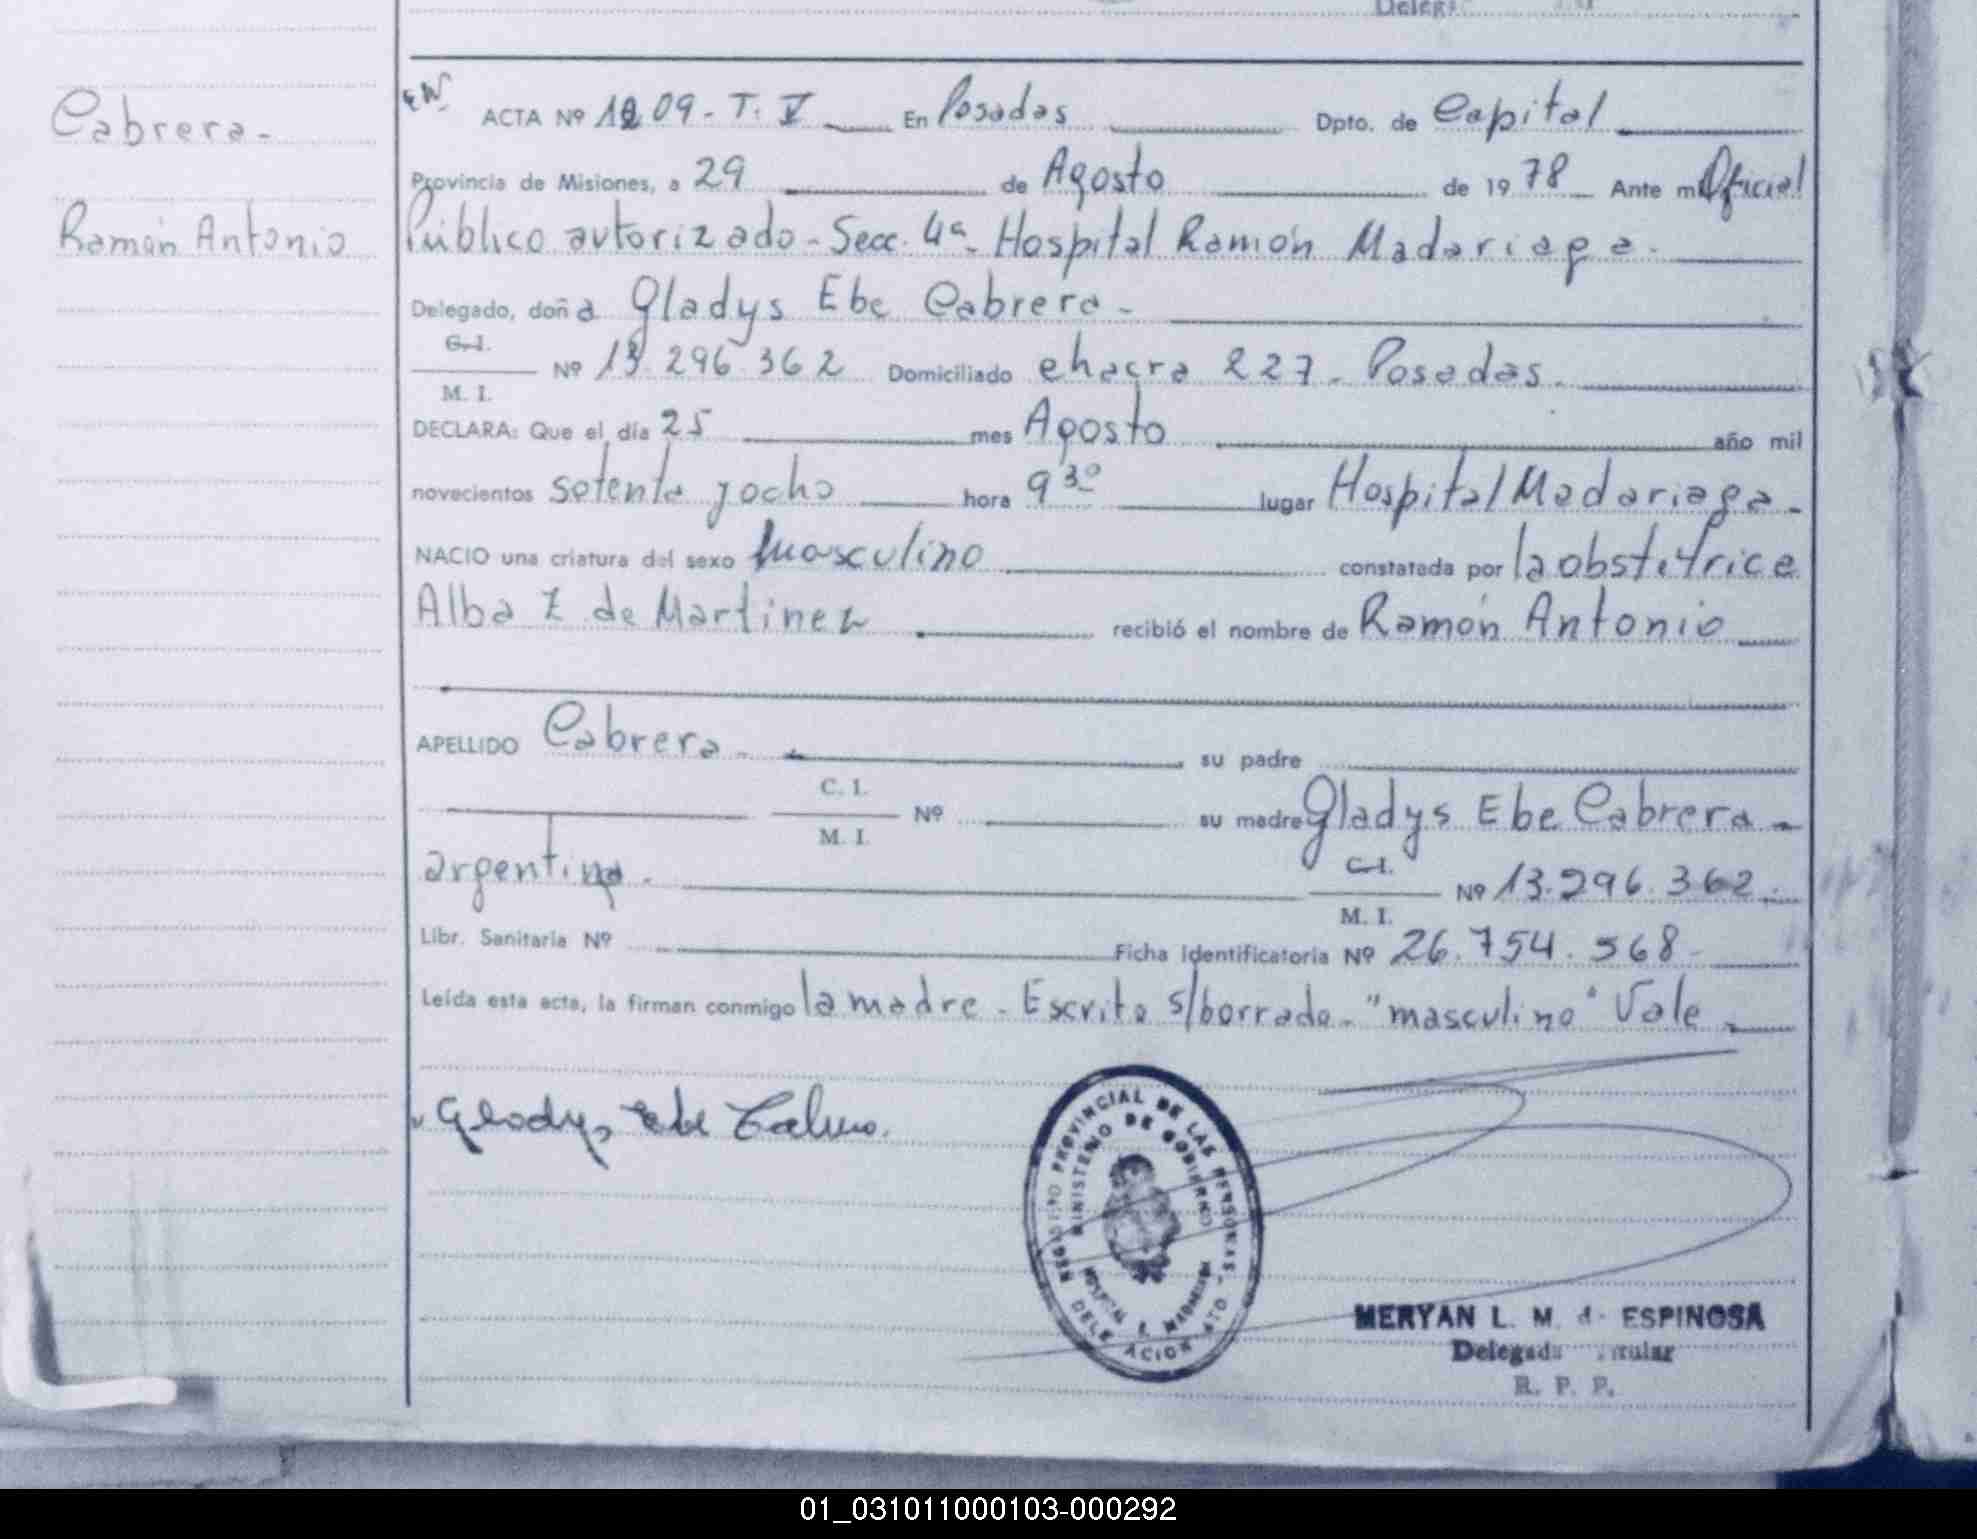 Deleg
Cabrera-
Ramón Antonio
ACTA Nº 1209 - T. V En Posadas Dpto. de Capital
Provincia de Misiones, a 29 de Agosto de 1978 Ante mí Oficial
Público autorizado - Secc. 4ª - Hospital Ramón Madariaga -
Delegado, doña Gladys Ebe Cabrera -
C. I.
Nº 13.296.362 Domiciliado chacra 227 - Posadas -
M. I.
DECLARA: Que el día 25 mes Agosto año mil
novecientos setenta y ocho hora 9 30 lugar Hospital Madariaga -
NACIO una criatura del sexo masculino constatada por la obstetrice
Alba Z de Martinez recibió el nombre de Ramón Antonio
APELLIDO Cabrera - su padre
C. I.
Nº su madre Gladys Ebe Cabrera -
M. I.
argentina - C. I. Nº 13.296.362 -
M. I.
Libr. Sanitaria Nº Ficha Identificatoria Nº 26.754.568 -
Leída esta acta, la firman conmigo la madre - Escrito s/borrado - "masculino" Vale -
Gladys Ebe Cabrera
REGISTRO PROVINCIAL DE LAS PERSONAS
MINISTERIO DE GOBIERNO
HOSPITAL R. MADARIAGA
DELEGACION
MERYAN L. M. d ESPINOSA
Delegada Titular
R. P. P.
01_031011000103-000292